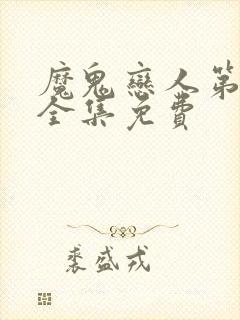 魔鬼戀人第
全集免費
裘盛戎